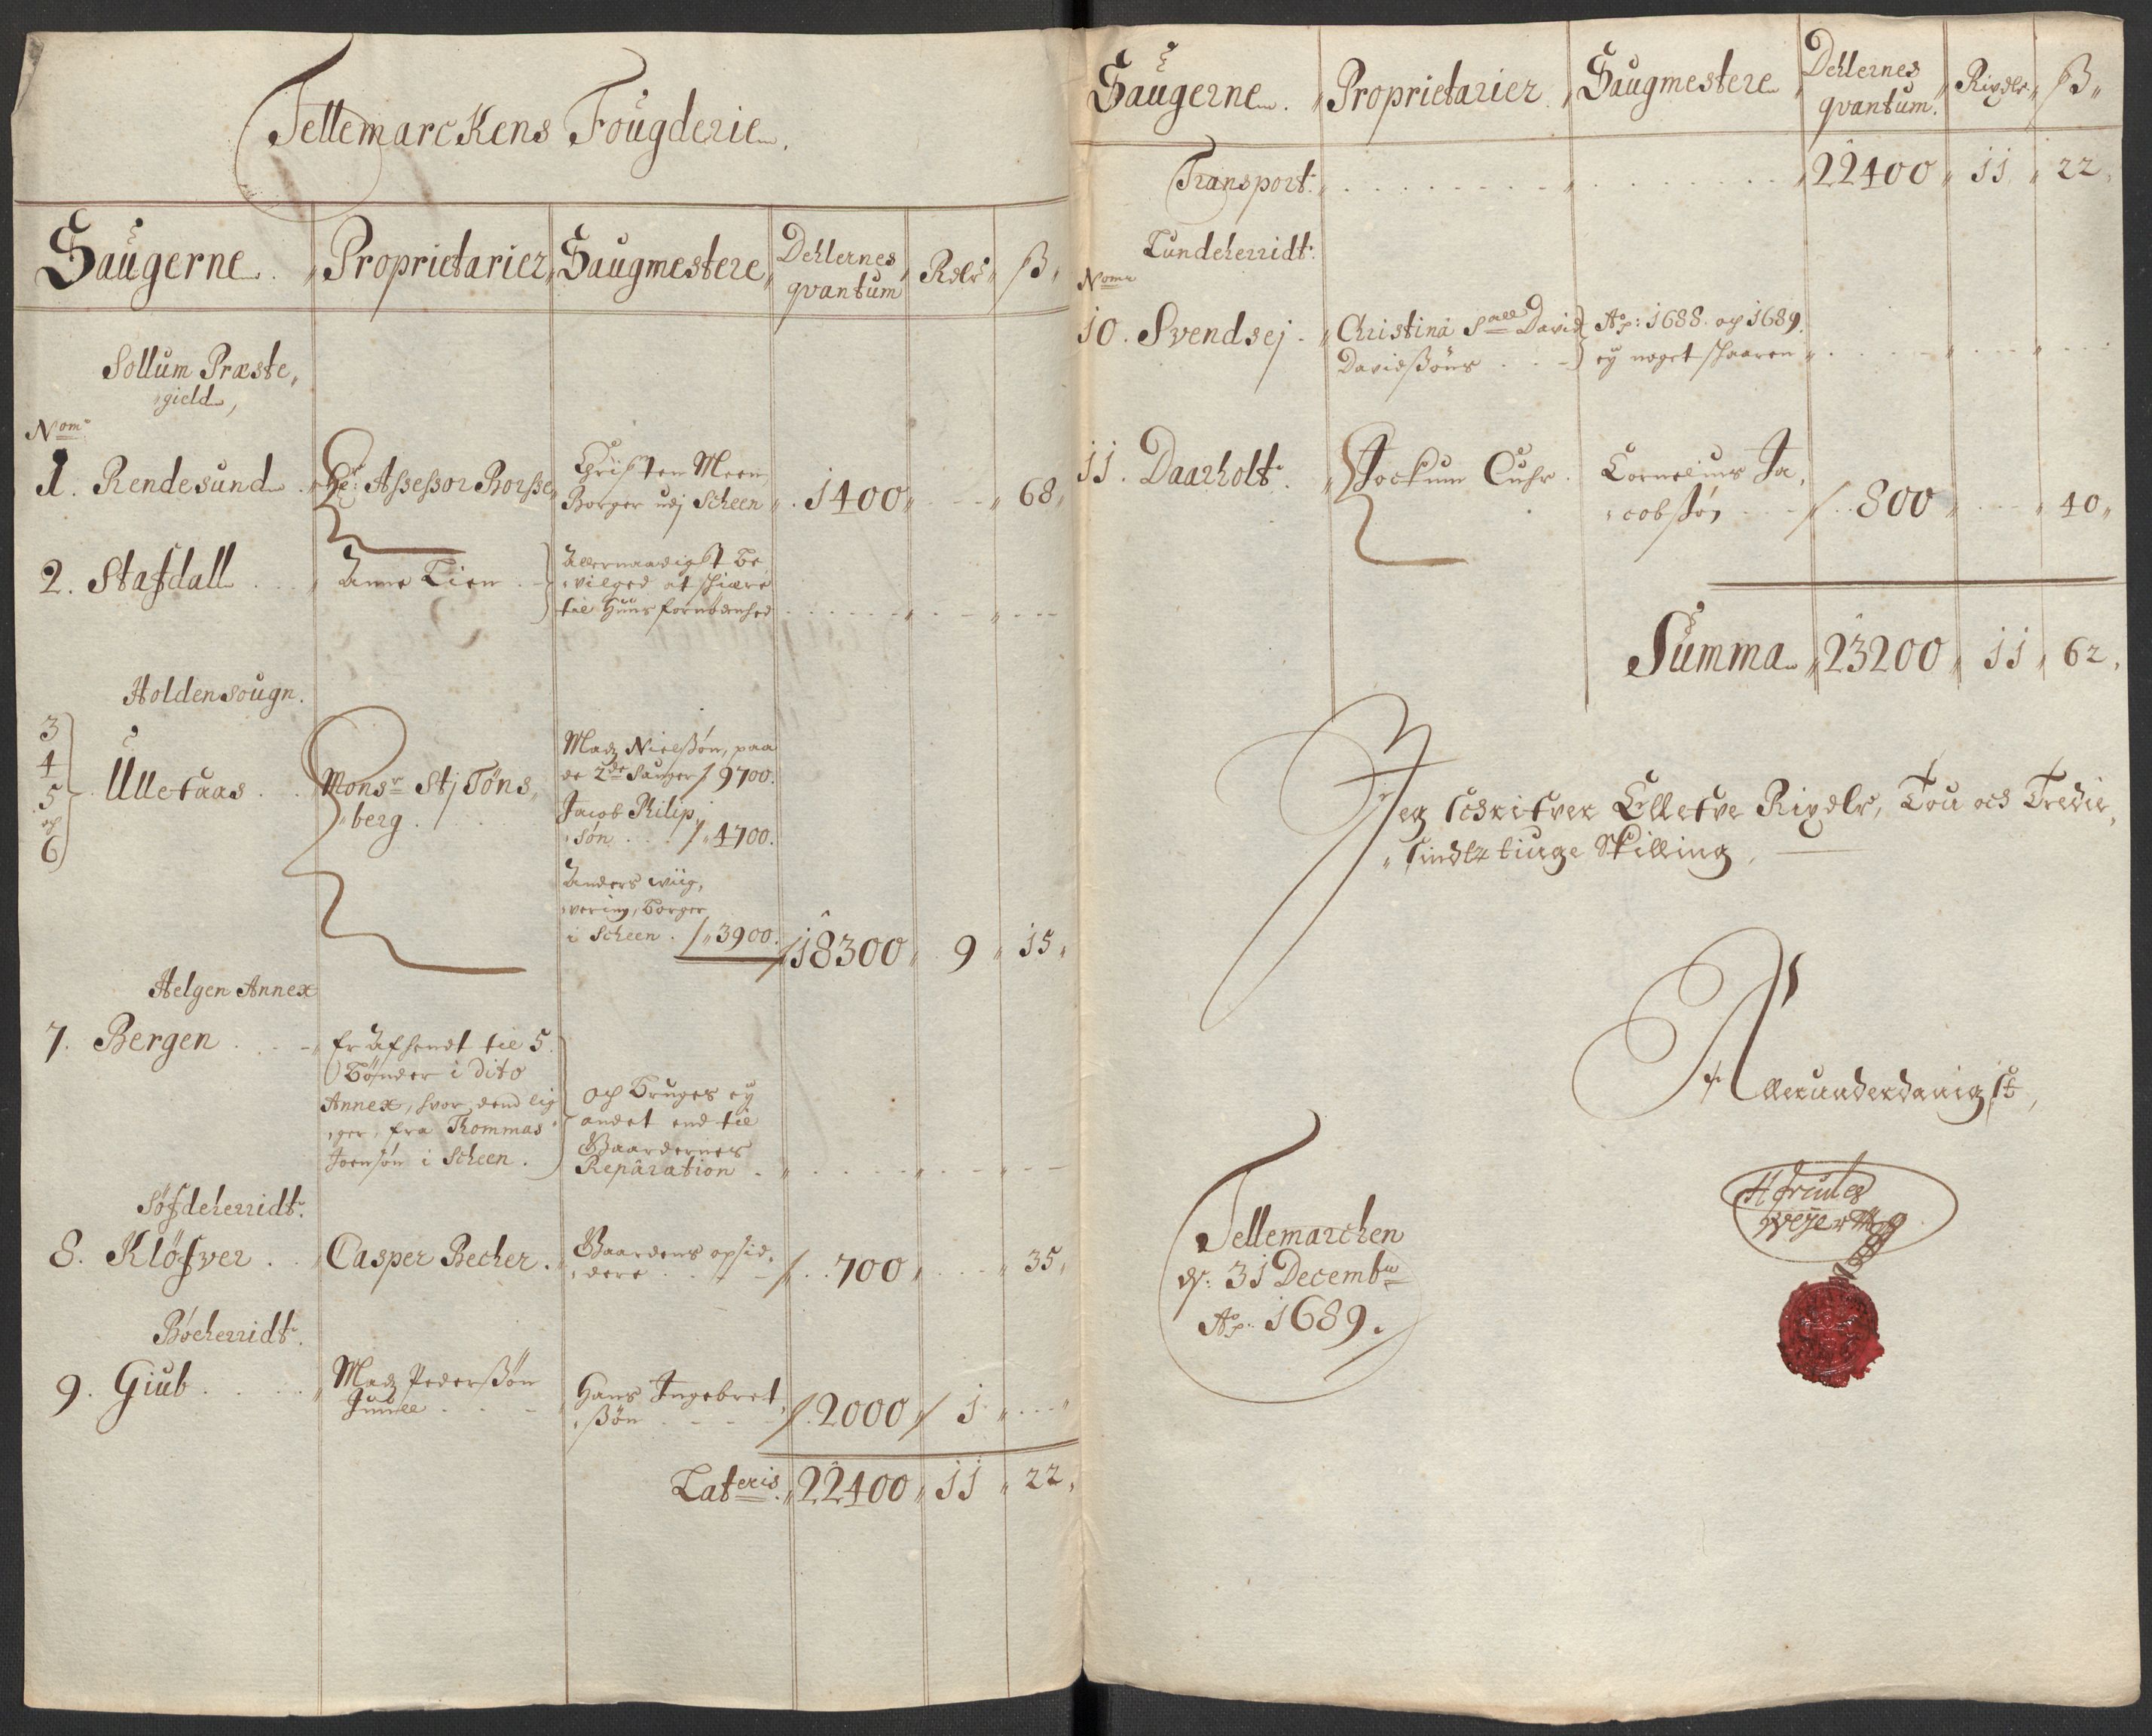 Tellemarckens Fougderie.
Saugerne. Proprietarier, Saugmestere, Dehlernes qvantum Rdlr ß,
Sollum Præste,
gield,
Nom:
1. Rendesund. Hr: Assessor Borsse, Christen Meen,
Borger udj Scheen 1400 68,
2. Stafdall Anne Lien Allernaadigst be,
vilged at schiære
til Huus fornødenhed
Holdensougn.
3
4
5
og
6
Ulletaas Monsr Stj Tøns,
berg
Madz Nielsßøn, paa
de 2de Sauger 9700.
Jacob Philip,
søn 4700.
Anders wiig,
vering, Borger
i Scheen. 3900.
18300 9 15,
Helgen Annex
7. Bergen Er Afhendt til 5
Bønder i Dito
Annex, hvor dend lig
ger, fra Thommas
Joensøn i Scheen.
och Bruges ey
andet end til
Gaardernes
Reparation
Søfdeherridt.
8. Kløfver Casper Becher. Gaardens opsid,
dere 700 35,
Bøeherridt.
9. Giub Madz Pedersßøn
Juuell Hans Ingebret,
ßøn 2000 1
Lateris. 22400 11 22,
Saugerne. Proprietarier. Saugmestere Dehlernes qvantum. Rixdlr ß,
Transport. 22400 11 22,
Lundeherridt.
Nom:
10. Svendsej Christina Sall David
Davidßøns
Ao: 1688. og 1689.
ey noget schaaren
11. Daarholt. Jockum Cuhr. Cornelius Ja,
cobsøn 800 40,
Summa 23200 11 62,
Jeg schrifver Elletve Rixdlr, Tou och Tredie,
sindtztiuge Skilling,
Allerunderdanigst,
Tellemarchen
d: 31 Decembr
Ao: 1689.
Hercules
Weyer